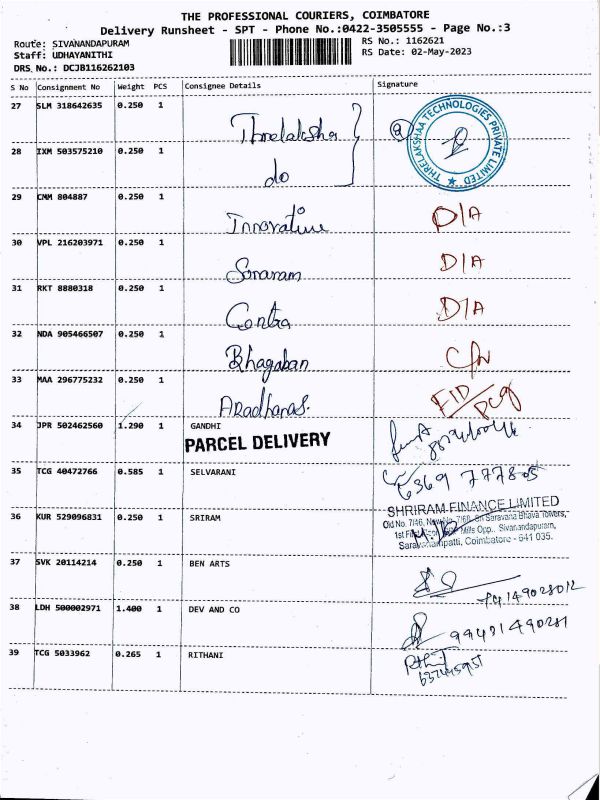 THE PROFESSIONAL COURIERS, COIMBATORE
Delivery Runsheet - SPT - Phone No.:0422-3505555 - Page No.:3
Route: SIVANANDAPURAM
RS No.: 1162621
Staff: UDHAYANITHI
RS Date: 02-May-2023
DRS No.: DCJB116262103
S No Consignment No Weight PCS Consignee Details Signature
27 SLM 318642635 0.250 1 Threlaksha
THRELAKSHAA TECHNOLOGIES PRIVATE LIMITED
28 IXM 503575210 0.250 1 do
29 CMM 804887 0.250 1 Innovative D/A
30 VPL 216203971 0.250 1 D/A
31 RKT 8880318 0.250 1 Contra D/A
32 NDA 905466507 0.250 1 Bhagaban C/N
33 MAA 296775232 0.250 1 Aradhanas.
34 JPR 502462560 1.290 1 GANDHI
PARCEL DELIVERY
35 TCG 40472766 0.585 1 SELVARANI 6369 777805
36 KUR 529096831 0.250 1 SRIRAM
SHRIRAM FINANCE LIMITED
Old No. 7/46, Sri Saravana Bhava Towers,
1st Mills Opp., Sivanandapuram,
Coimbatore - 641 035.
37 SVK 20114214 0.250 1 BEN ARTS
38 LDH 500002971 1.400 1 DEV AND CO
39 TCG 5033962 0.265 1 RITHANI